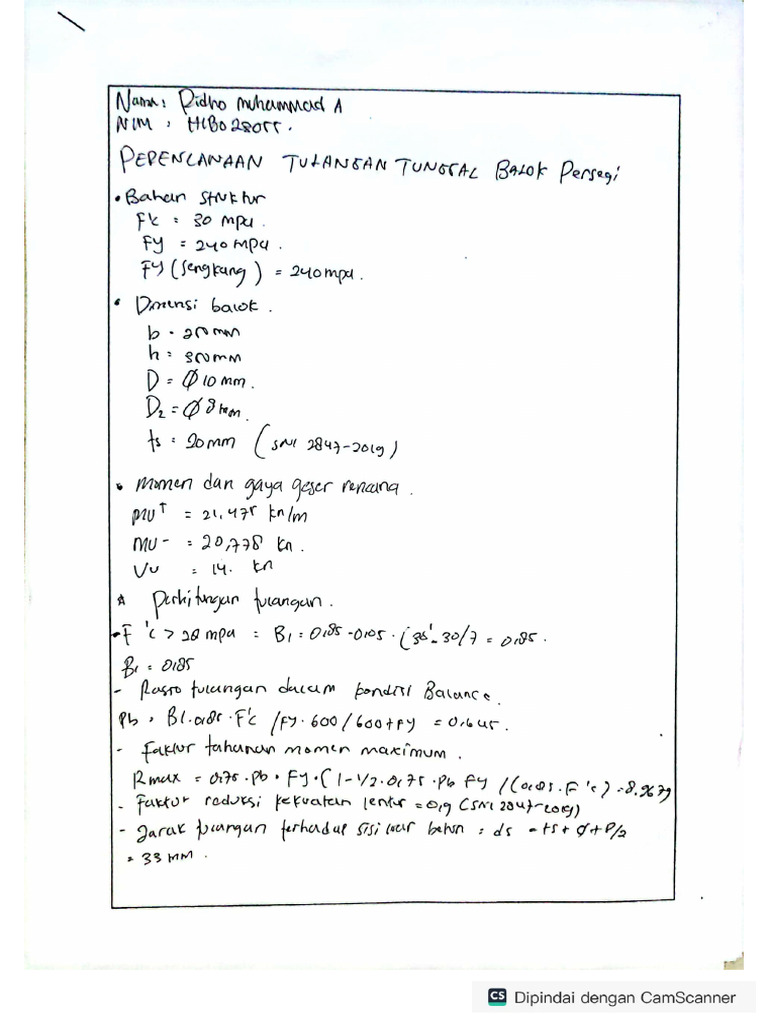 Nama : Ridho Muhammad A
NIM : H1B028055.
PERENCANAAN TULANGAN TUNGGAL BALOK Persegi
• Bahan Struktur
F'c = 30 mpa.
Fy = 240 mpa.
Fy (Sengkang) = 240 mpa.
• Dimensi balok.
b = 200 mm
h = 300 mm
D = Ø 10 mm.
D2 = Ø 8 mm.
ts = 20 mm (SNI 2847-2019)
• Momen dan gaya geser rencana.
MU+ = 21,475 kn/m
MU- = 20,778 kn.
Vu = 14. kn
* Perhitungan tulangan.
- F'c > 28 mpa = B1 = 0,85 - 0,05 . (30 - 30/7 = 0,85.
B1 = 0,85
- Rasio tulangan dalam kondisi Balance.
Pb = B1. 0,85 . F'c /Fy . 600/600+Fy = 0,645.
- Faktur tahanan momen maximum.
Rmax = 0,75 . Pb . Fy . (1-1/2. 0,75 . Pb Fy /(0,85 . F'c) = 8,9679
- Faktur reduksi kekuatan lentur = 0,9 (SNI 2847-2019)
- Jarak tulangan terhadap sisi luar beton = ds = ts + Ø + P/2
= 33 MM.
CS Dipindai dengan CamScanner